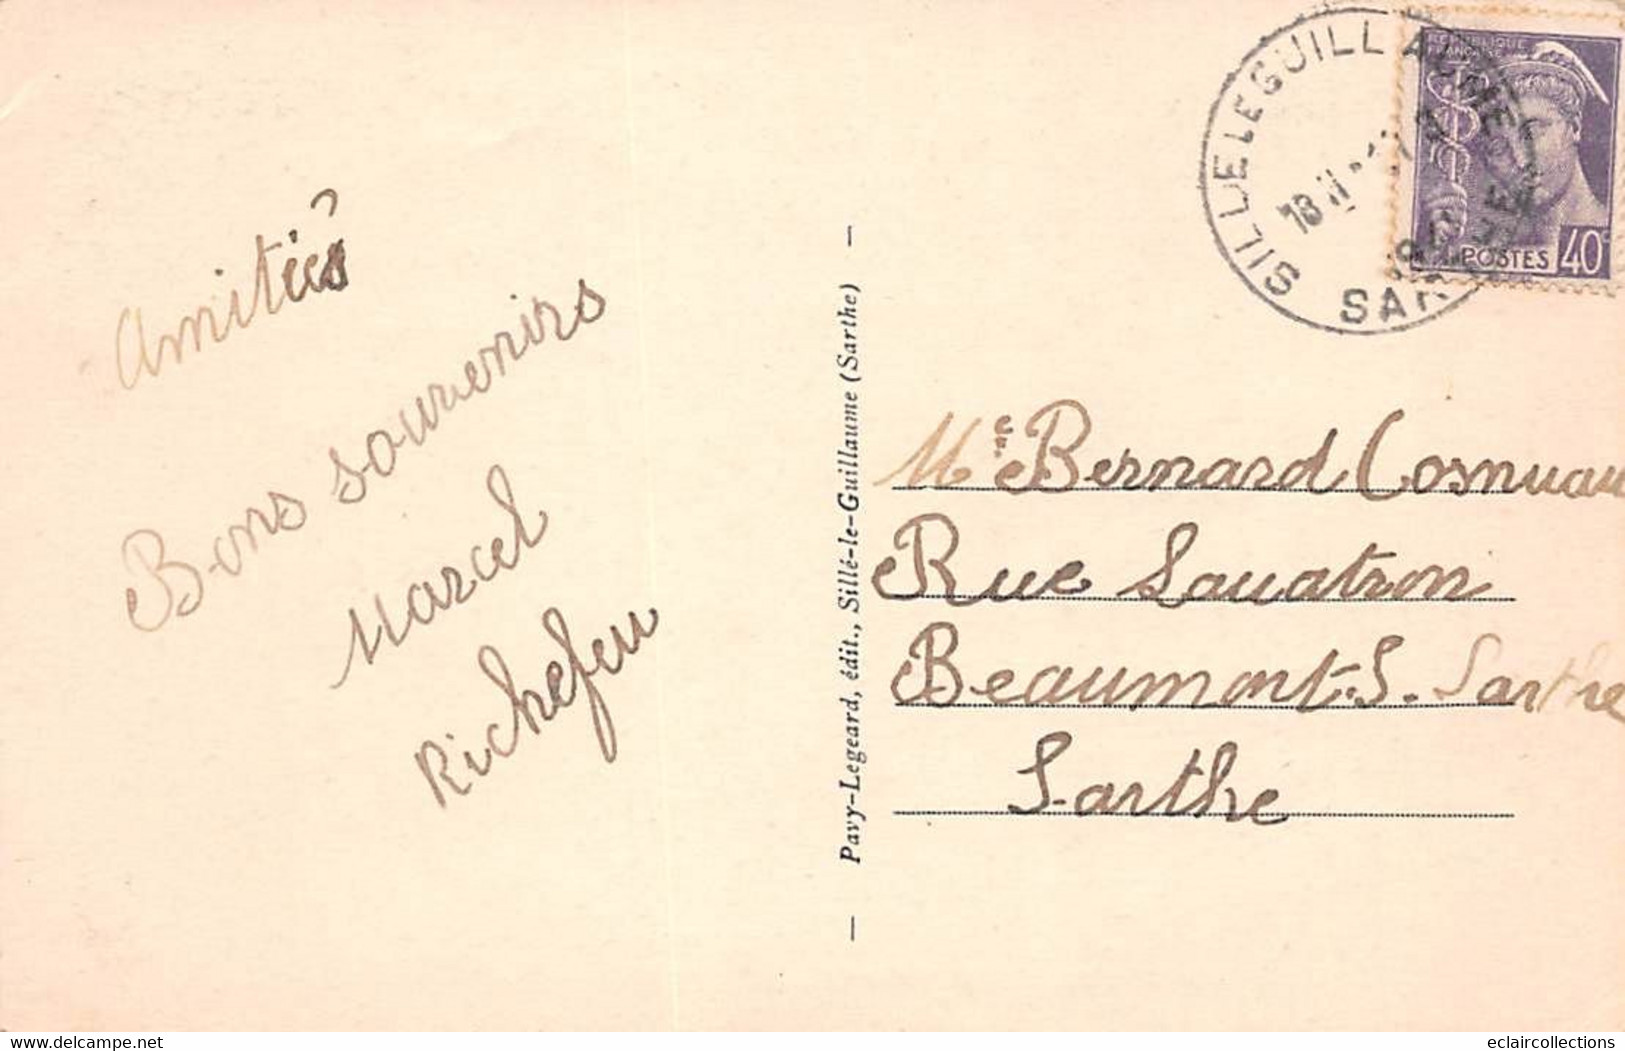 SILLE LE GUILLAUME
SAR
REPUBLIQUE
FRANÇAISE
POSTES 40c
Amitiés
Bons souvenirs
Marcel
Richefeu
Pavy-Legeard, édit., Sillé-le-Guillaume (Sarthe)
Bernard Cosnuau
Rue Lavatron
Beaumont-S. Sarthe
Sarthe
delcampe.net
eclaircollections